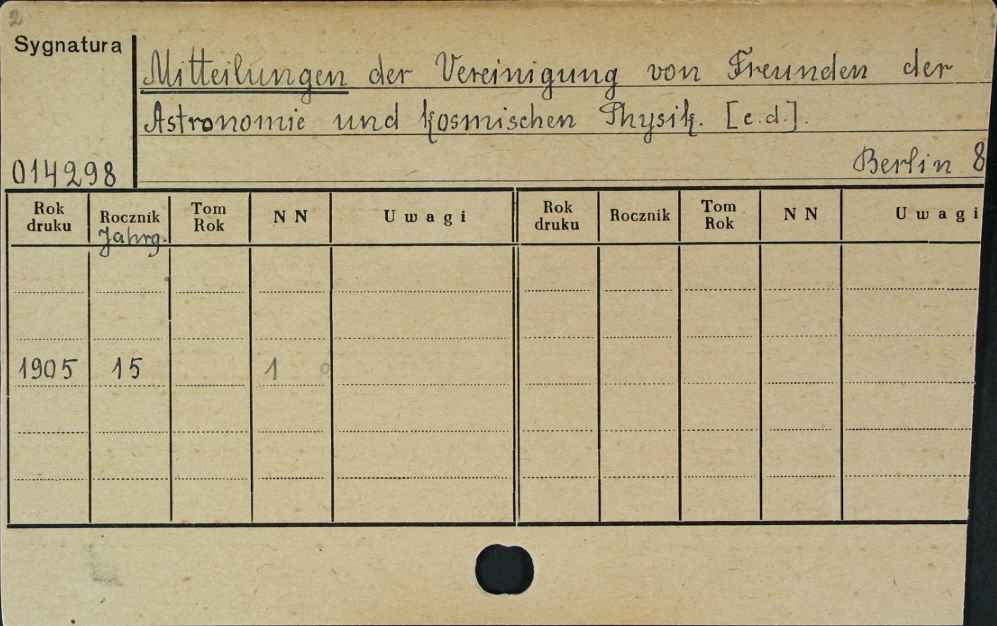 2
Sygnatura
Mitteilungen der Vereinigung von Freunden der
Astronomie und kosmischen Physik. [e.d.].
014298
Berlin 8
Rok druku Rocznik Jahrg. Tom Rok NN Uwagi Rok druku Rocznik Tom Rok NN Uwagi
1905 15 1